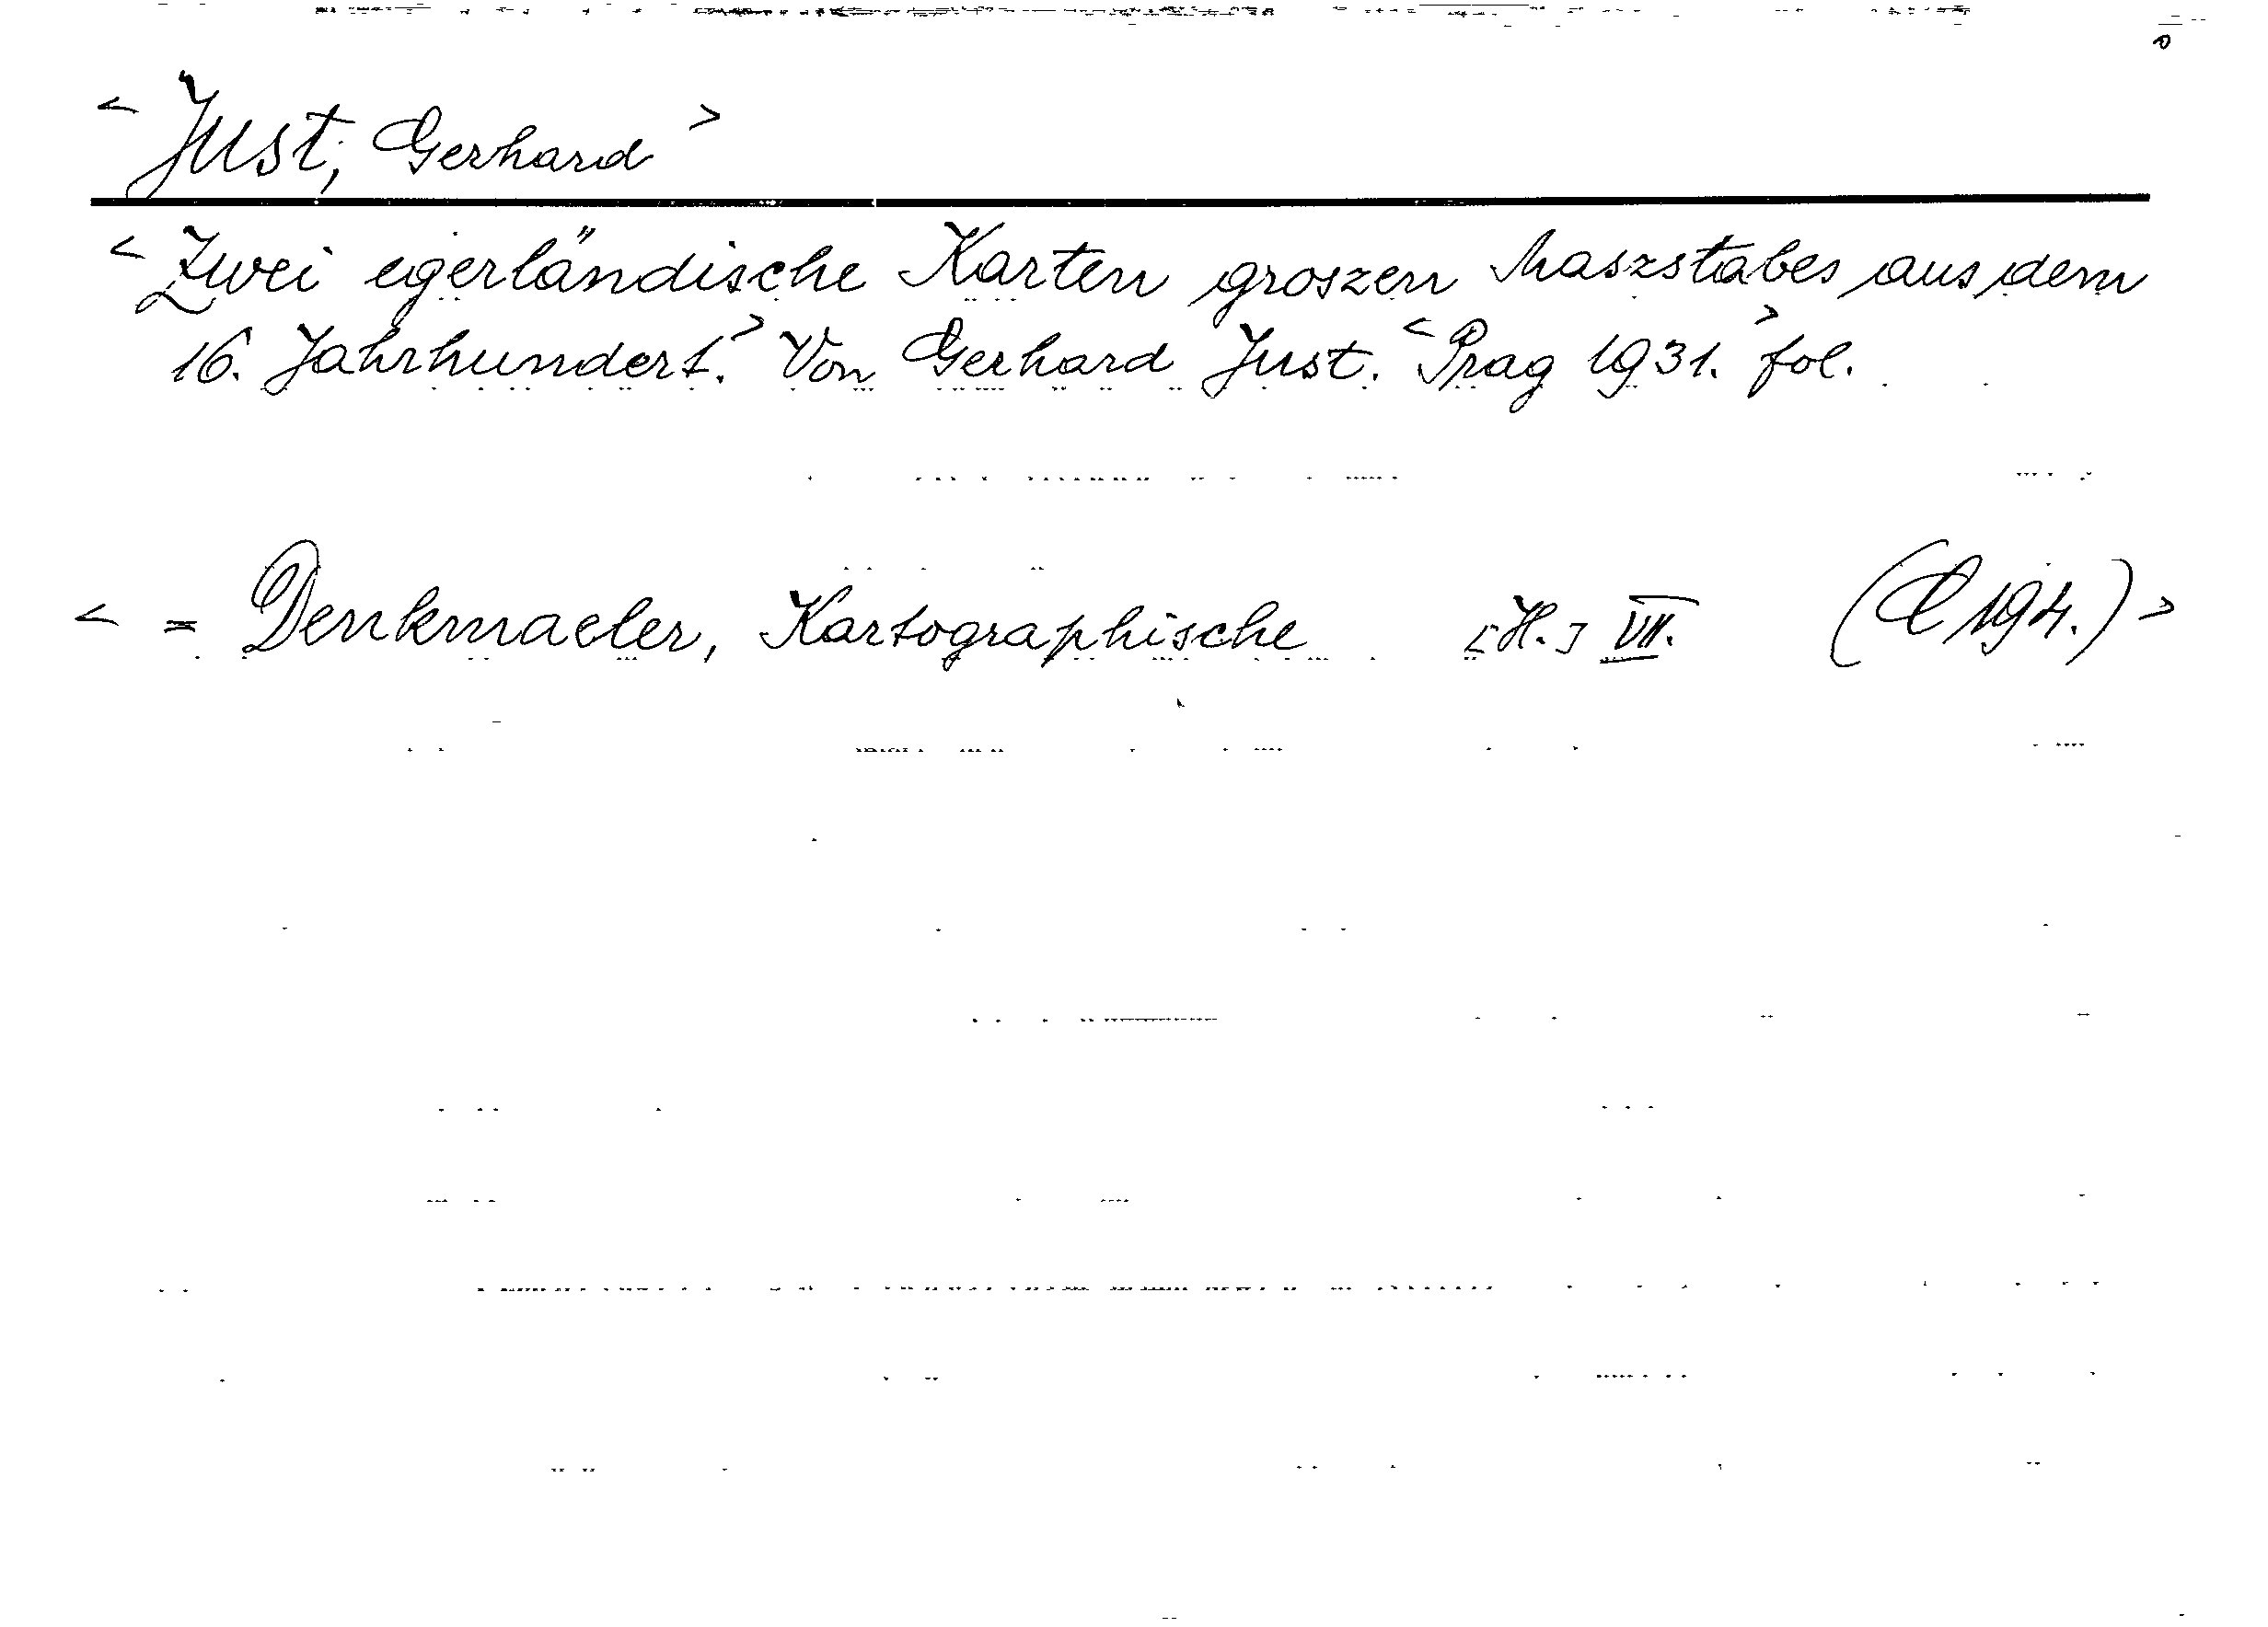 < Just, Gerhard >
< Zwei egerländische Karten groszen Maszstabes aus dem
16. Jahrhundert. > Von Gerhard Just. < Prag 1931. > fol.
< = Denkmaeler, Kartographische [H.] VII. (C 194.) >